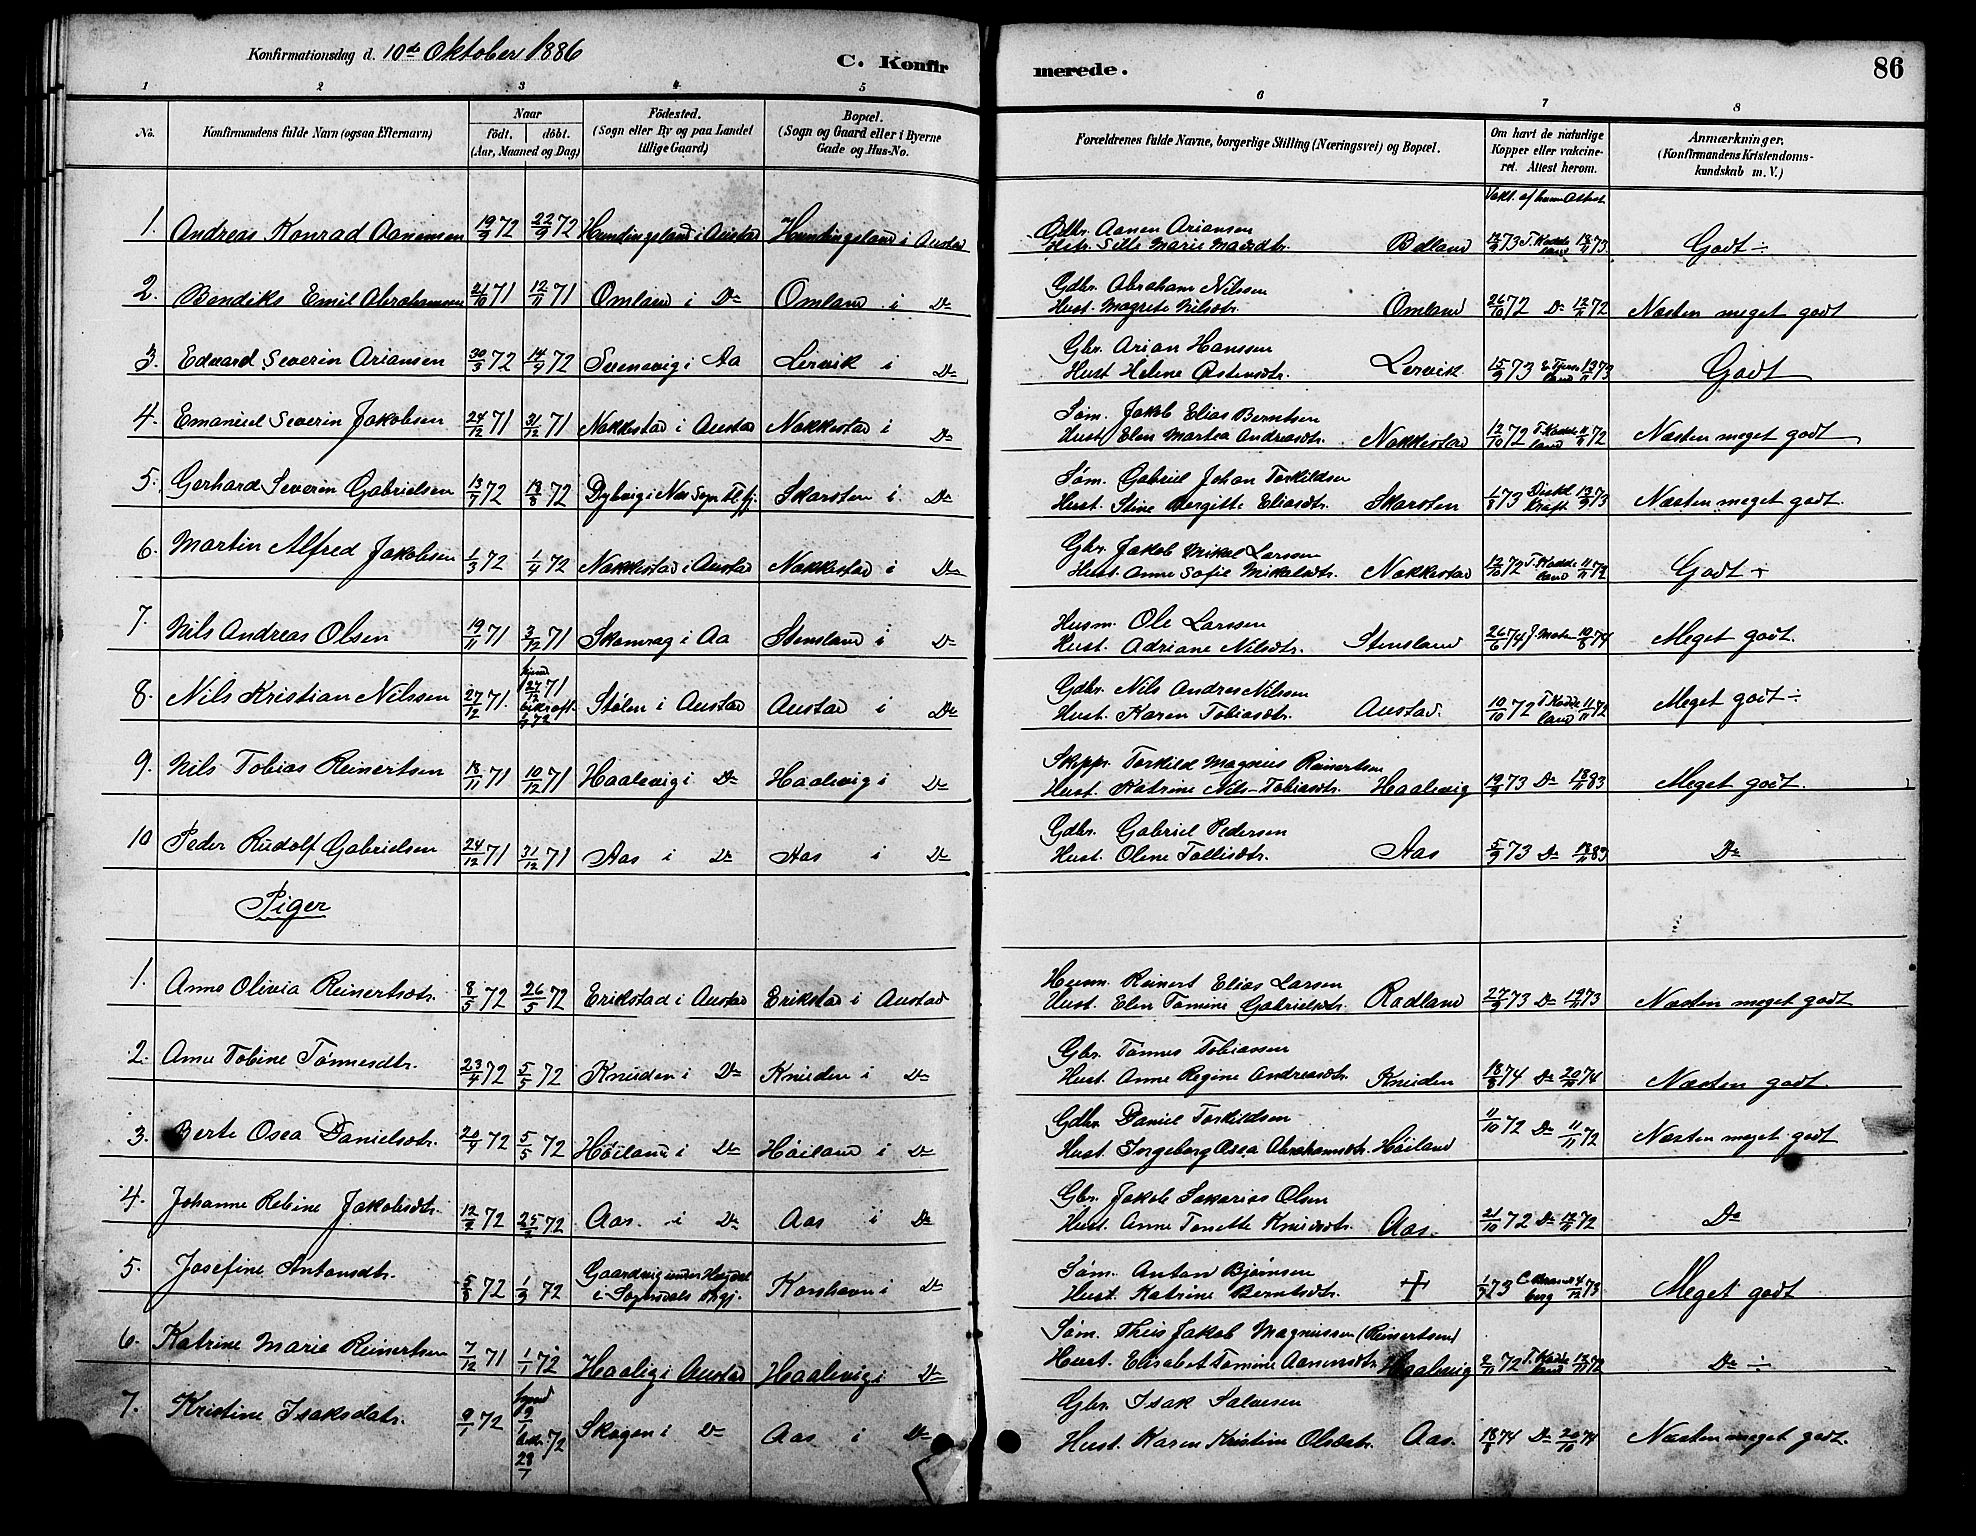 Konfirmationsdag d. 10de Oktober 1886
C. Konfirmerede.
86
1 2 3 4 5 6 7 8
No.
Konfirmandens fulde Navn (ogsaa Efternavn)
Naar
födt. döbt.
(Aar, Maaned og Dag)
Födested.
(Sogn eller By og paa Landet
tillige Gaard)
Bopæl.
(Sogn og Gaard eller i Byerne
Gade og Hus-No.
Forældrenes fulde Navne, borgerlige Stilling (Næringsvei) og Bopæl.
Om havt de naturlige
Kopper eller vakcine-
ret. Attest herom.
Anmærkninger.
(Konfirmandens Kristendoms-
kundskab m. V.)
1. Andreas Konrad Aanensen 19/9 72 22/9 72 Hundingsland i Austad Hundingsland i Austad
Aanen Ariansen
Marie Bolland Godt ÷
2. Bendiks Emil Abrahamsen 21/10 71 12/11 71 Omland i Do Omland i Do
Gdbr. Abraham Nilssen
Hust. Magrete Nilsdtr. Omland 26/10 72 Do 12/11 72 Næsten meget godt
3. Edvard Severin Ariansen 30/3 72 14/4 72 Svenevig i Aa Lervik i Do
Gbr. Arian Hanssen
Hust Helene Østensdtr. Lervik 15/9 73 Godt
4. Emanuel Severin Jakobsen 24/12 71 31/12 71 Nakkestad i Austad Nakkestad i Do
Søm. Jakob Elias Berntsen
Hust Elen Martea Andreasdtr. Nakkestad 12/10 72 T. Kadde
land 11/11 72 Næsten meget godt
5. Gerhard Severin Gabrielsen 13/7 72 18/8 72 Dybvig i Næs Skarsten i Do
Søm. Gabriel Johan Torkildsen
Hust. Stine Bergitte Eliasdtr. Skarsten Kraft Næsten meget godt
6. Martin Alfred Jakobsen 1/3 72 1/4 72 Nakkestad i Austad Nakkestad i Do
Gbr. Jakob Mikal Larssen
Hust. Anne Sofie Mikalsdtr. Nakkestad 12/10 72 T. Kadde
land 11/11 72 Godt ÷
7. Nils Andreas Olsen 19/11 71 3/12 71 Skamrag i Aa Stensland i Do
Husm. Ole Larssen
Hust. Adriane Nilsdtr. Stensland 26/6 74 Meget godt.
8. Nils Kristian Nilssen 27/12 71. hjemd 27/12 71 Stølen i Austad Austad i Do
Gdbr. Nils Andreas Nilssen
Hust. Karen Tobiasdtr. Austad. 10/10 72 T Kadde
land 11/11 72 Meget godt ÷
9. Nils Tobias Reinertsen 18/11 71 10/12 71 Haalevig i Do Haalevig i Do
Skippr. Torkild Magnus Reinertsen
Hust. Katrine Nils-Tobiasdtr. Haalevig 19/9 73 Do Meget godt.
10 Peder Rudolf Gabrielsen 24/12 71 31/12 71 Aas i Do Aas i Do
Gdbr. Gabriel Pedersen
Hust. Olene Tollisdtr. Aas 5/9 73 Do Do
Piger
1. Anne Olivia Reinertsdtr. 8/5 72 26/5 72 Erikstad i Austad Erikstad i Austad
Husm. Reinert Elias Larsen
Hust. Elen Tomine Gabrielsdtr. Radland 27/9 73 Do Næsten meget godt
2. Anne Tobine Tønnesdtr. 23/4 72 5/5 72 Knuden i Do Knuden i Do
Gbr. Tønnes Tobiassen
Hust. Anne Regine Andreasdtr. Knuden 18/8 74 Do 20/10 74 Næsten godt
3. Berte Osea Danielsdtr. 20/4 72 5/5 72 Høiland i Do Høiland i Do
Gdbr. Daniel Torkildsen
Hust. Ingeborg Osea Abrahamsdtr. Høiland 11/10 72 Do 11/11 72 Næsten meget godt
4. Johanne Rebine Jakobsdtr. 12/2 72 25/2 72 Aas i Do Aas i Do
Gbr. Jakob Sakarias Olsen
Hust. Anne Tonette Knudsdtr. Aas. 21/10 72 Do Do
5. Josefine Antonsdtr. 5/8 72 1/9 72 Gaardvig under
i Sogndals Korshavn i Do
Søm. Anton Bjørnsen
Hust. Katrine Berntsdtr. + Meget godt
6. Katrine Marie Reinertsen 7/12 71 1/1 72 Haalig i Austad Haalevig i Do
Søm. Theis Jakob Magnussen (Reinertsen)
Hust. Elisabet Tomine Aanensdtr. Haalevig 2/11 72 T. Kadde
land Do ÷
7. Kristine Isaksdatr. 9/1 72 28/1 72 Skogen i Do Aas i Do
Gbr. Isak Salvesen
Hust. Karen Kristine Olsdatr. Aas. 18/8 74 Do 20/10 74 Næsten meget godt.